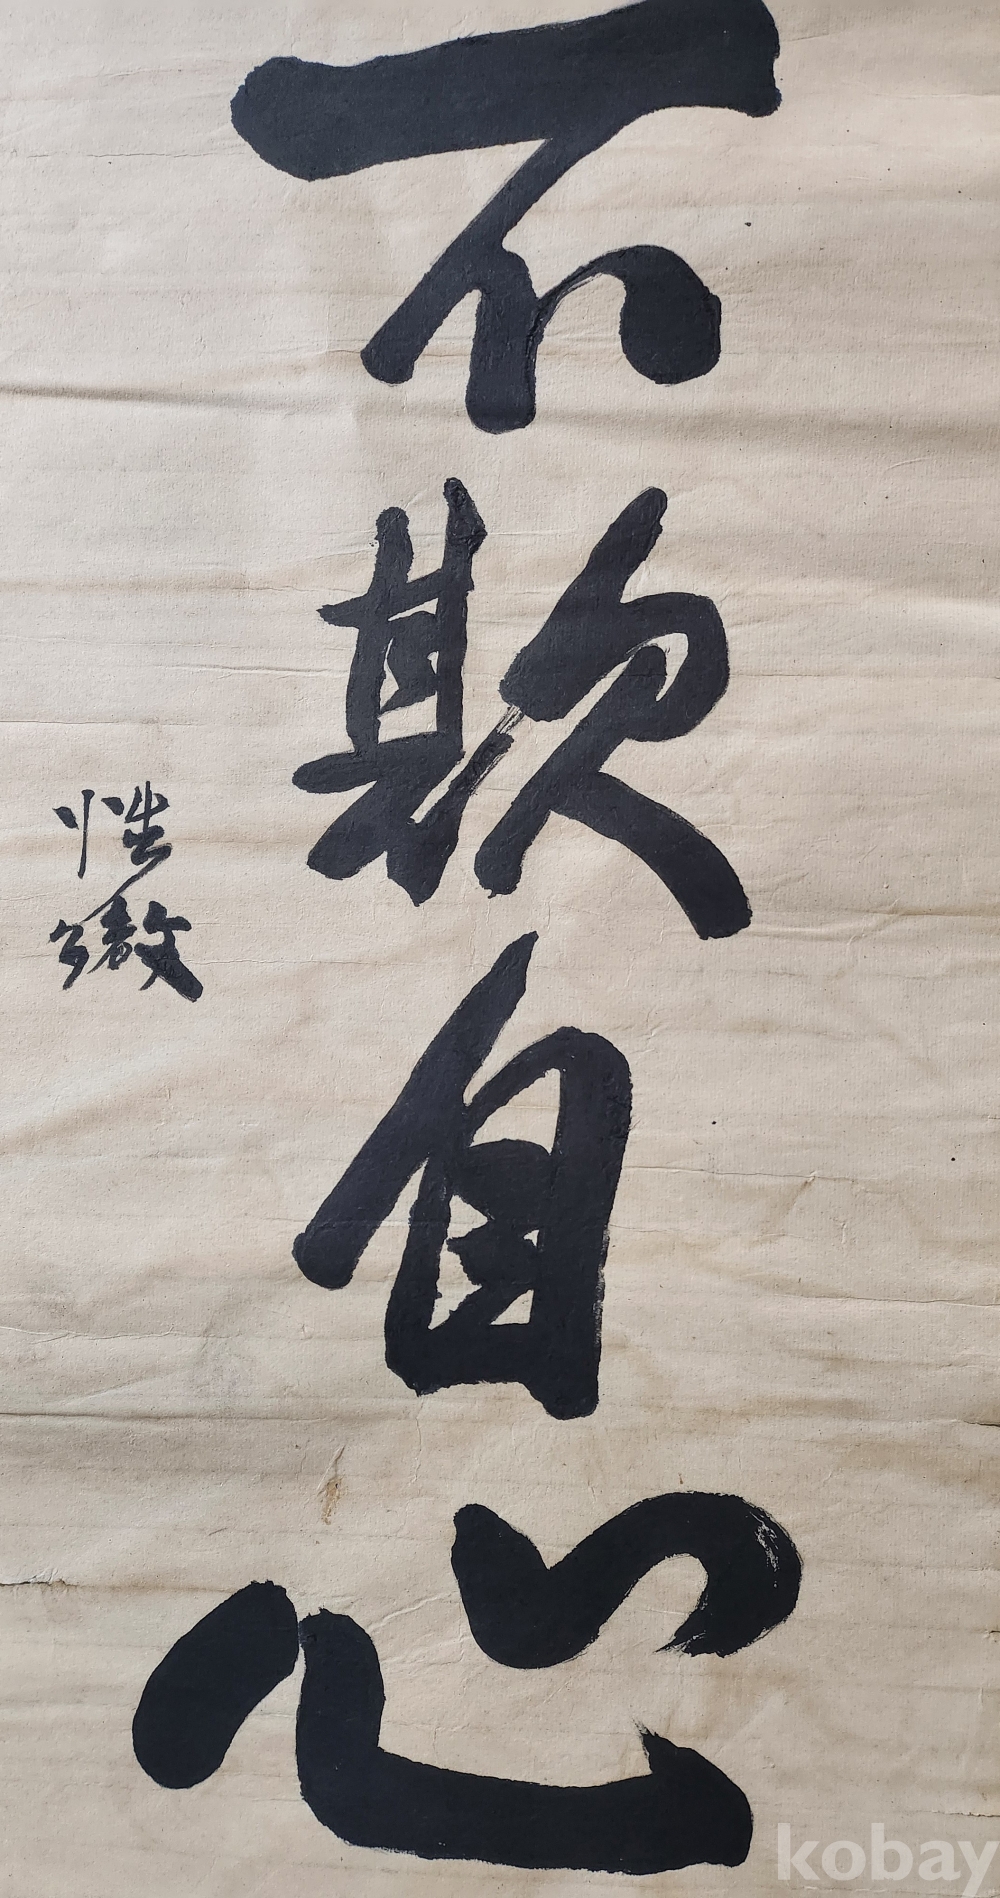 不欺自心
kobay